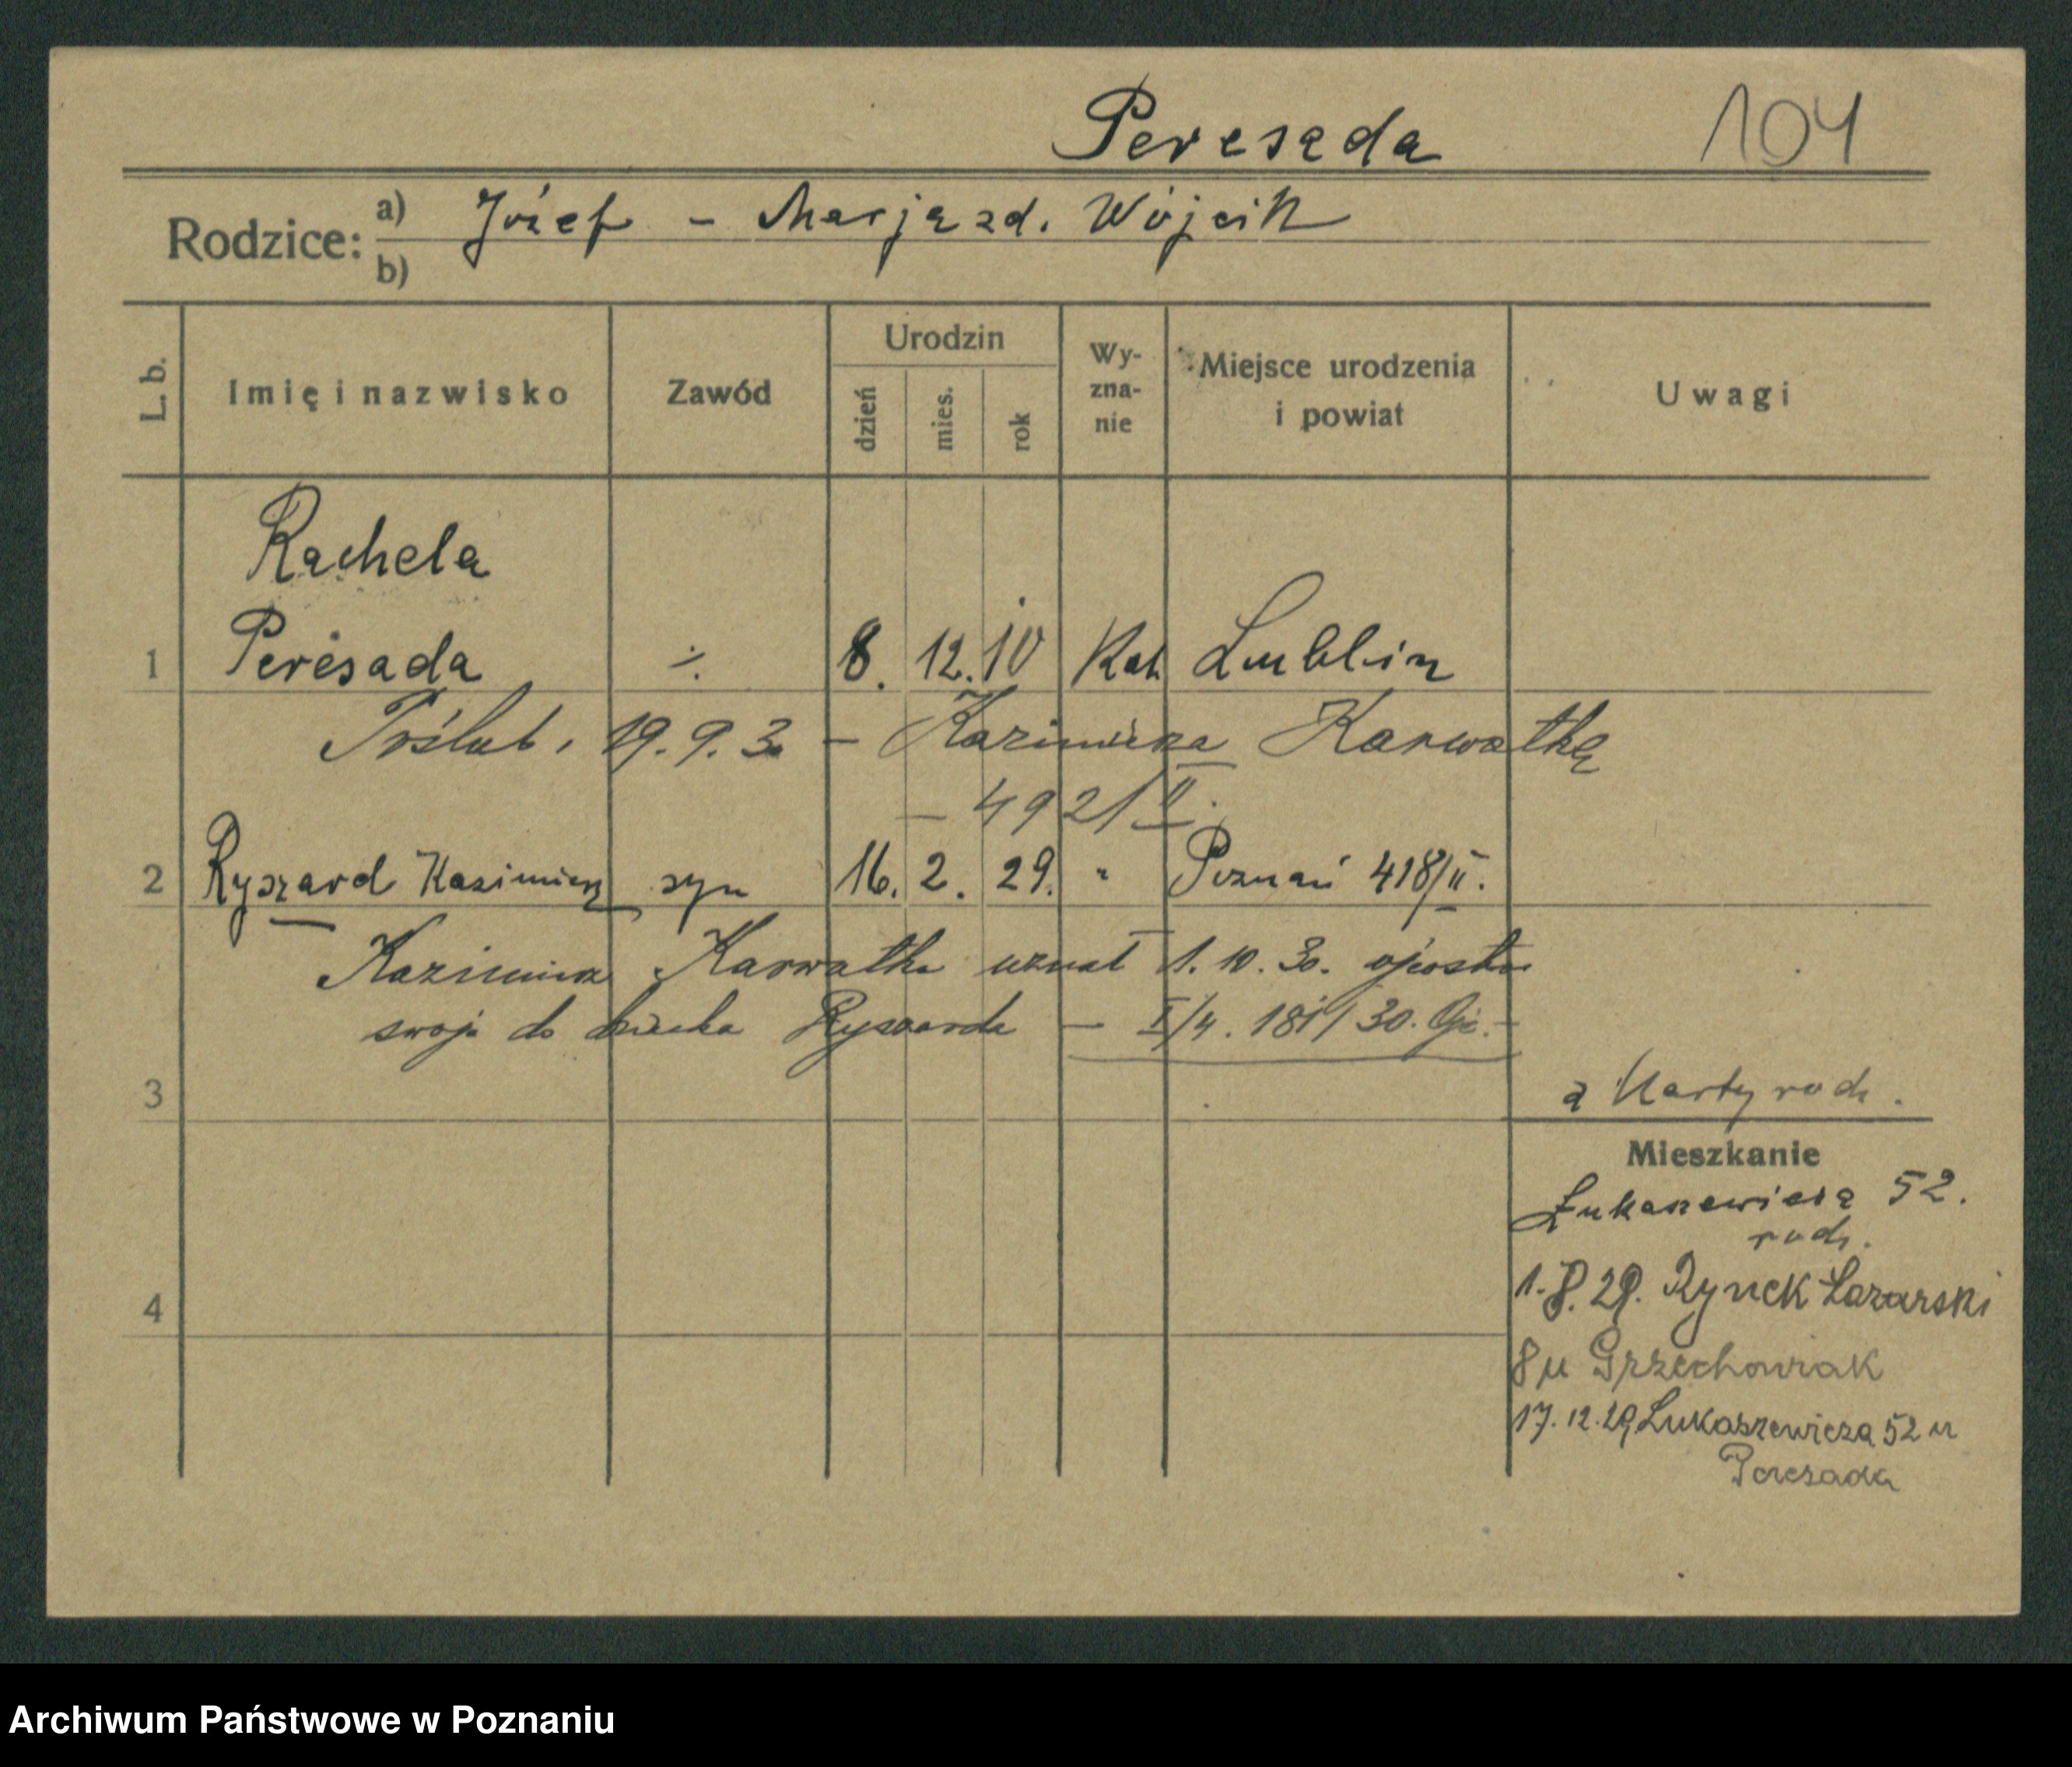 Peresada 104
Rodzice: a) Józef - Marja zd. Wójcik
b)
L. b. Imię i nazwisko Zawód Urodzin dzień mies. rok Wy-zna-nie Miejsce urodzenia i powiat Uwagi
Rachela
1 Peresada ÷ 8. 12. 10 Kat. Lublin
Poślub. 19.9.30 - Kazimierza Karwatkę
- 492/II.
2 Ryszard Kazimierz syn 16. 2. 29. " Poznań 418/II.
Kazimierz Karwatka uznał 1.10.30. ojcostwo
swoje do dziecka Ryszarda - I/4. 181/30.
3 z Karty rodz.
Mieszkanie
Łukaszewicza 52.
rodz.
1.8.29. Rynek Łazarski
8 u Grzechowiak
4
17.12.29 Łukaszewicza 52 u
Peresada
Archiwum Państwowe w Poznaniu